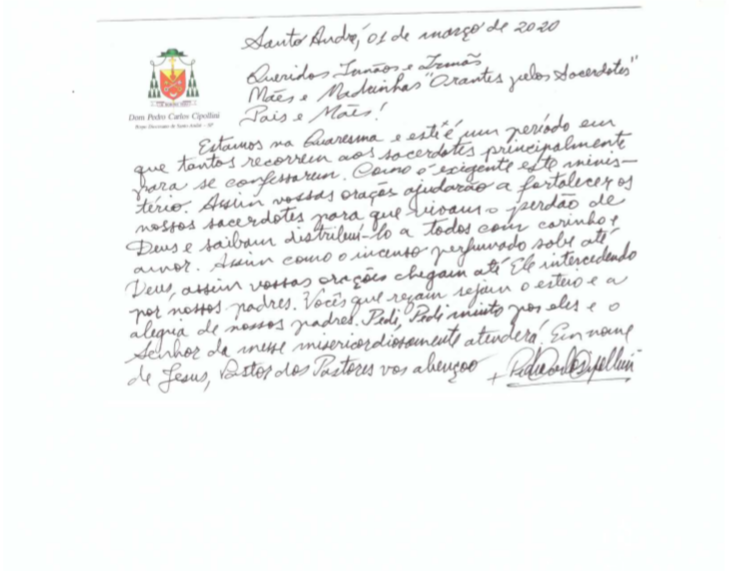 Santo André, 01 de março de 2020
Queridos Irmãos e Irmãs
Mães e Madrinhas "Orantes pelos Sacerdotes"
Pais e Mães!
Dom Pedro Carlos Cipollini
Bispo Diocesano de Santo André - SP
Estamos na Quaresma e este é um período em
que tantos recorrem aos sacerdotes principalmente
para se confessarem. Como é exigente este minis-
tério. Assim vossas orações ajudarão a fortalecer os
nossos sacerdotes para que vivam o perdão de
Deus e saibam distribuí-lo a todos com carinho e
amor. Assim como o incenso perfumado sobe até
Deus, assim vossas orações chegam até Ele intercedendo
por nossos padres. Vocês que rezam sejam o esteio e a
alegria de nossos padres. Pedi, Pedi muito por eles e o
Senhor da messe misericordiosamente atenderá! Em nome
de Jesus, Pastor dos Pastores vos abençoo + Pedro Carlos Cipollini